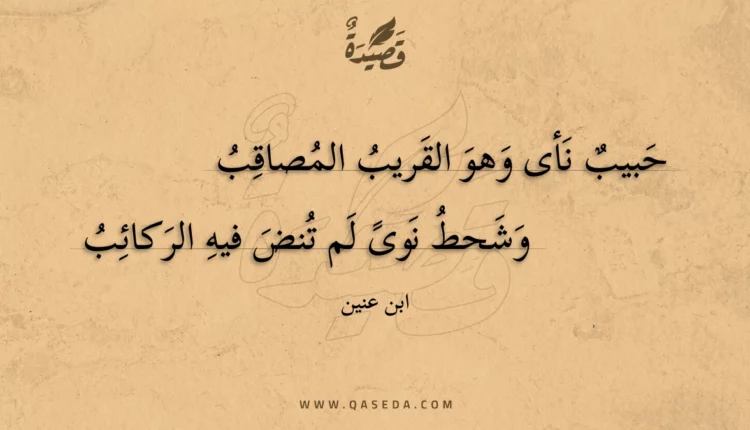 قَصِيْدَةٌ
حَبيبٌ نَأى وَهوَ القَريبُ المُصاقِبُ
وَشَحطُ نَوىً لَم تُنضَ فيهِ الرَكائِبُ
ابن عنين
WWW.QASEDA.COM